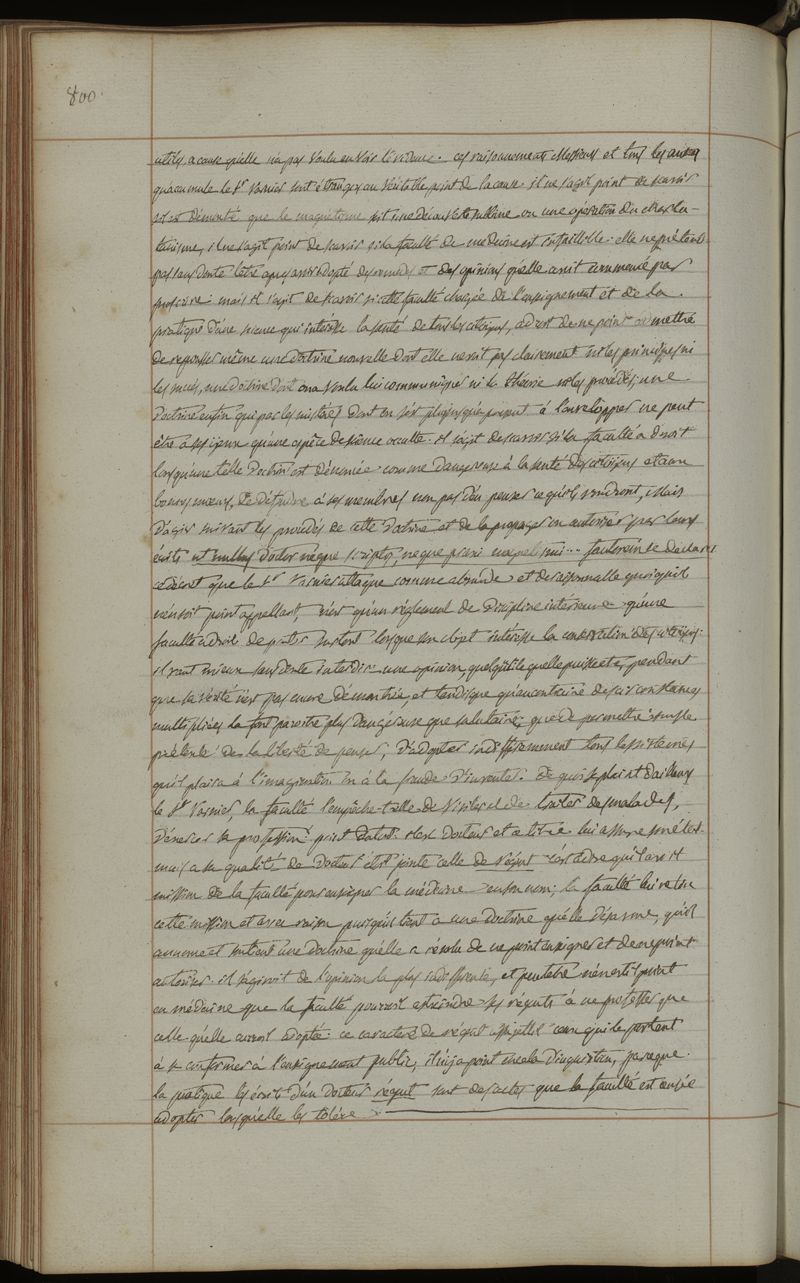 800.
utiles, a cause qu'elle n'a pas voulu en voir l'évidence. ces raisonnements Messieurs et tous les autres
qu'accumule le Sr. Varnier sont étrangers au véritable point de la cause. il ne s'agit point de scavoir
s'il est démontré que le magnétisme soit une découverte sublime ou une opération du charla-
tanisme, il ne s'agit point de scavoir si la faculté de medecine est infaillible. elle ne prétend
pas sans doute l'être après avoir adopté des remedes et des opinions qu'elle avoit commencé par
proscrire: mais il s'agit de scavoir si cette faculté chargée de l'enseignement et de la
pratique d'une science qui intéresse la santé de tous les citoyens, a droit de ne point admettre
de repousser même une doctrine nouvelle dont elle ne voit pas clairement ni les principes ni
les suites, une doctrine dont on a voulu lui communiquer ni la théorie ni les procédés; une
doctrine enfin qui par les mistères dont on s'est plu jusqu'à présent à l'envelopper ne peut
être à ses yeux qu'une espèce de science occulte. il s'agit de scavoir si la faculté a droit
lorsqu'une telle doctrine est dénoncée comme dangereuse à la santé des citoyens et aux
bonnes moeurs, de défendre à ses membres non pas d'en penser ce qu'ils voudront, Mais
d'agir suivant les procédés de cette doctrine et de la propager en autoriser par leurs
écrits ut nullus doctor neque scriptis, neque praxi
ce décret que le Sr. Varnier attaque comme absurde et déraisonnable quoiqu'il
n'en soit point appellant, n'est qu'un réglement de discipline intérieure qu'une
faculté a droit de porter surtout lorsque son objet intéresse la conservation des citoyens.
il vaut mieux sans doute interdire une opinion, quelqu'utile qu'elle puisse etre, pendant
que sa vérité n'est pas encore démontrée, et tandis que qu'au contraire des circonstances
multipliées la font paroitre plus dangereuse que salutaire; que de permettre sous le
prétexte de la liberté de penser, d'adopter indifféremment tous les sistemes
qu'il plaira à l'imagination ou à la fraude d'inventer. De quoi se plaint d'ailleurs
le Sr. Varnier, la faculté l'empêche-t-elle de visiter et de traiter des malades,
d'exercer sa profession? point du tout. il est Docteur et ce titre lui assure son état.
mais a sa qualité de Docteur étoit jointe celle de régent c'est a dire qu'il avoit
mission de la faculté pour enseigner la médecine en son nom; la faculté lui retire
cette mission et avec raison puisqu'il tient a une doctrine qu'elle désavoue, qu'il
annonce et soutient une doctrine qu'elle a résolu de ne point enseigner et de ne point
autoriser. il s'agiroit de l'opinion la plus indifférente, et peutetre n'en est-il point
en médecine que la faculté pourroit astreindre ses régents à ne professer que
celle qu'elle auroit adoptée: ce caractère de régent assujettit ceux qui le portent
à se conformer à l'enseignement public, il n'y a point en cela d'inquisition, parceque
la pratique les écrits d'un Docteur régent sont des actes que la faculté est censée
adopter lorsqu'elle les tolère.